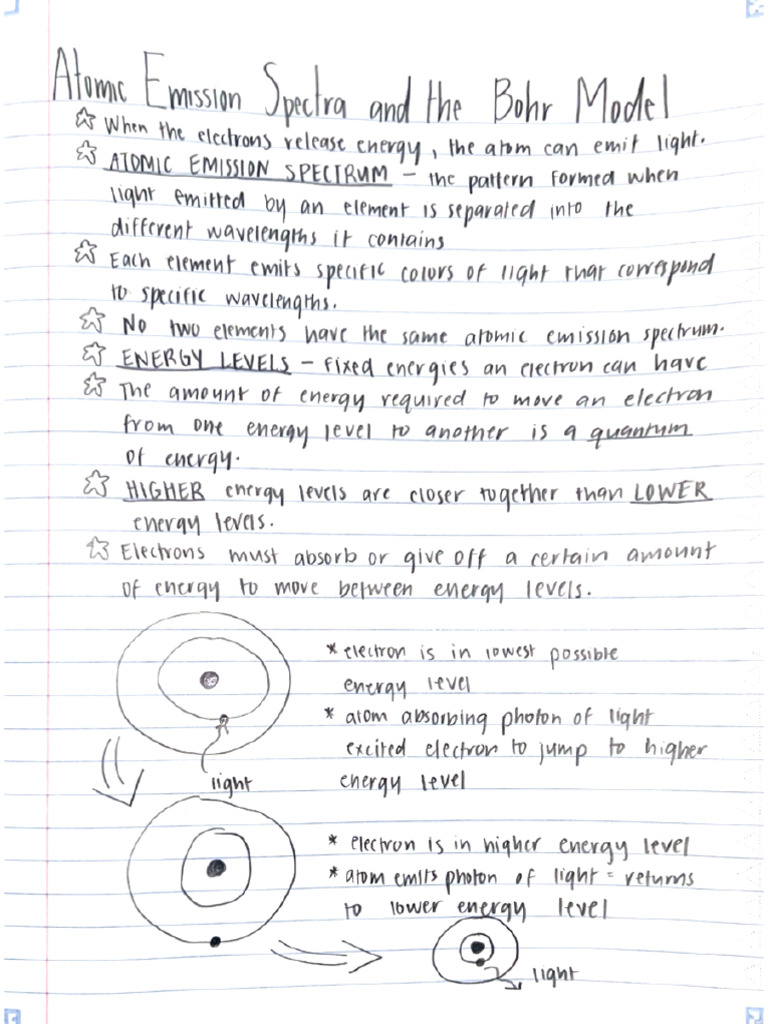 Atomic Emission Spectra and the Bohr Model
When the electrons release energy, the atom can emit light.
ATOMIC EMISSION SPECTRUM – the pattern formed when
light emitted by an element is separated into the
different wavelengths it contains
Each element emits specific colors of light that correspond
to specific wavelengths.
No two elements have the same atomic emission spectrum.
ENERGY LEVELS – fixed energies an electron can have
The amount of energy required to move an electron
from one energy level to another is a quantum
of energy.
HIGHER energy levels are closer together than LOWER
energy levels.
Electrons must absorb or give off a certain amount
of energy to move between energy levels.
* electron is in lowest possible
energy level
* atom absorbing photon of light
excited electron to jump to higher
energy level
light
* electron is in higher energy level
* atom emits photon of light = returns
to lower energy level
light